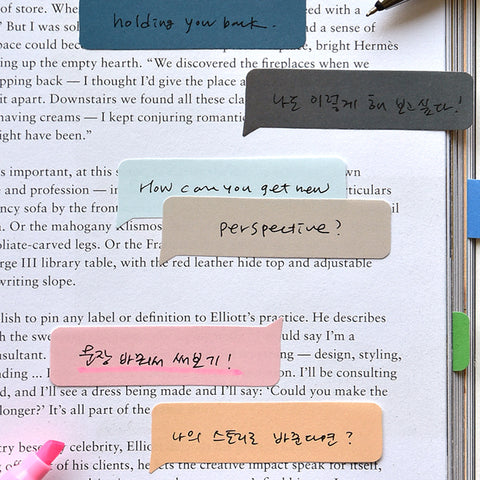 holding you back.
of store. with a
But I was a sense of
could place, bright Hermès
up the empty hearth. “We discovered the fireplaces when we
back — I thought I’d give the place
나도 이렇게 해 보고싶다!
it apart. Downstairs we found all these
creams — I kept conjuring
have been.”
important, at this
and profession —
How can you get new
sofa by the front
perspective?
Or the mahogany Klismos
legs. Or the
III library table, with the red leather hide top and adjustable
writing slope.
to pin any label or definition to Elliott’s practice. He describes
the say I’m a
— design, styling,
문장 바꿔서 써보기!
... I I’ll be consulting
and I’ll see a dress being made and I’ll say: ‘Could you make the
longer?’ It’s all part of the
나의 스토리로 바꾼다면?
celebrity,
of his clients, he lets the creative impact speak for itself,